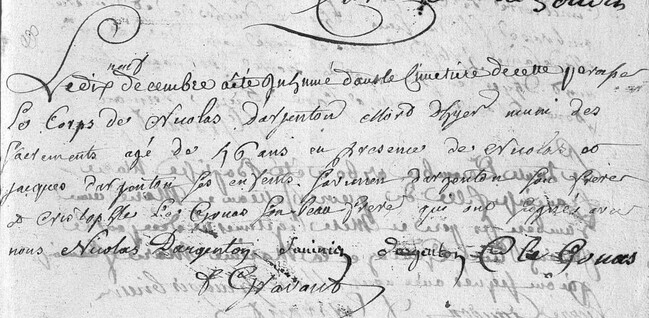 neuf
Le dix decembre a été Inhumé dans le Cimetiere de cette paroisse
Le Corps de Nicolas Dargenton mord d'hyer muni des
sacrements agé de 56 ans en presence de Nicolas et
jacques dargenton ses enfents Saturnin dargenton son frere
et cristophle Le Couas son beau frere qui ont signés avec
nous Nicolas Dargenton dargenton C le Couas